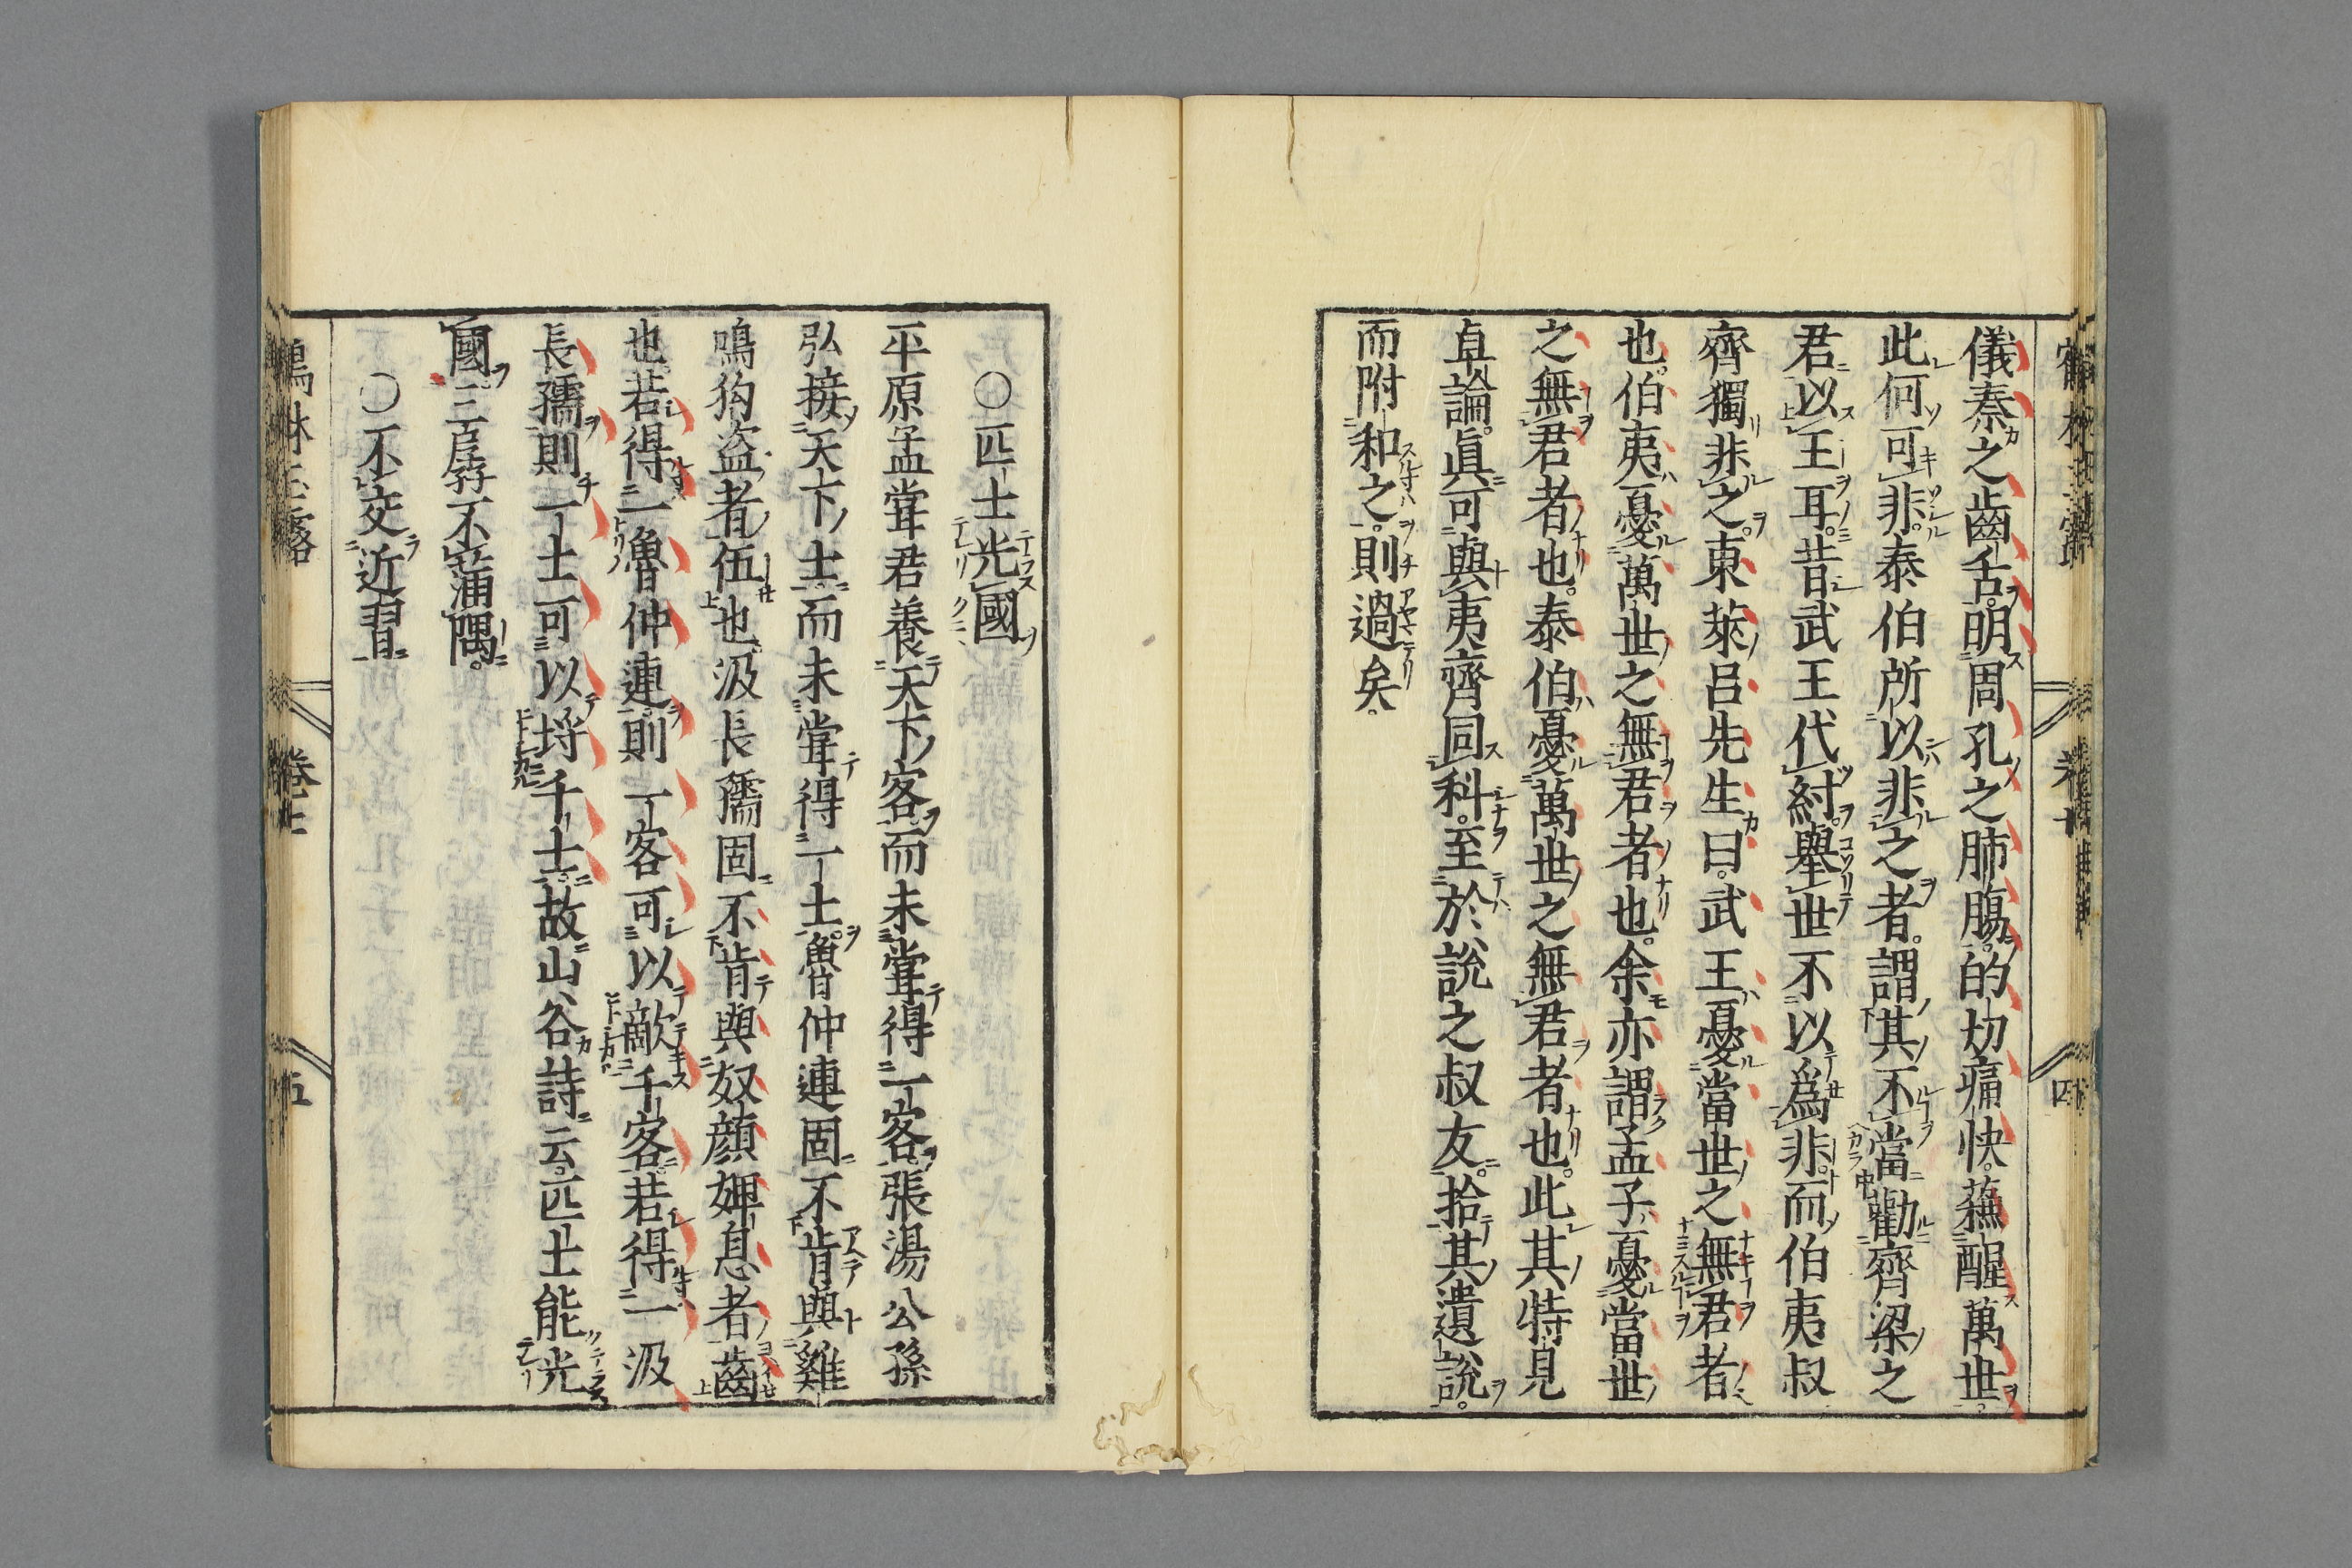 儀秦之齒舌。明周孔之肺腸。的切痛快。蘓醒萬世。
此何可非。泰伯所以非之者。謂其不當勸齊梁之
君以王耳。昔武王代紂。舉世不以爲非。而伯夷叔
齊獨非之。東萊呂先生曰。武王憂當世之無君者
也。伯夷憂萬世之無君者也。余亦謂孟子憂當世
之無君者也。泰伯憂萬世之無君者也。此其特見
卓論。眞可與夷齊同科。至於說之叔友。拾其遺說。
而附和之。則過矣。
〇匹士光國
平原孟甞君養天下客。而未甞得一客。張湯公孫
弘接天下士。而未甞得一士。魯仲連固不肯與雞
鳴狗盗者伍也。汲長孺固不肯與奴顔婢息者齒
也。若得一魯仲連。則一客可以敵千客。若得一汲
長孺。則一士可以埒千士。故山谷詩云。匹士能光
國。三孱不滿隅。
〇不交近習
鶴林玉露
五
四